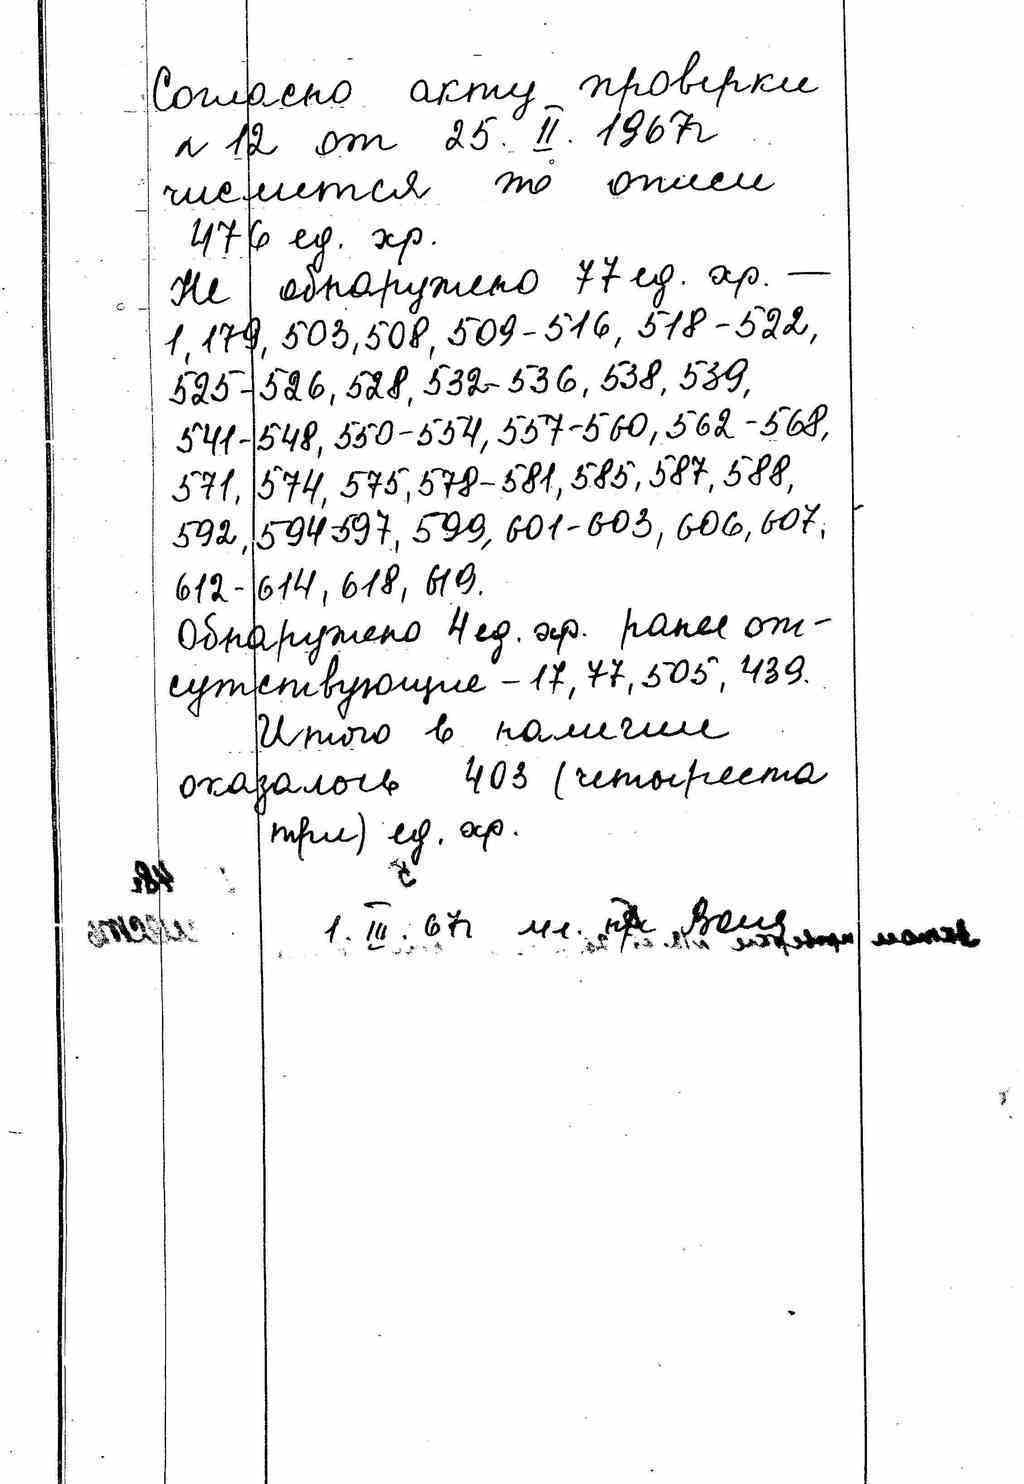 Согласно акту проверки
N 12 от 25. II. 1967г
числится по описи
476 ед. хр.
Не обнаружено 77 ед. хр. —
1, 179, 503, 508, 509-516, 518-522,
525-526, 528, 532-536, 538, 539,
541-548, 550-554, 557-560, 562-568,
571, 574, 575, 578-581, 585, 587, 588,
592, 594-597, 599, 601-603, 606, 607,
612-614, 618, 619.
Обнаружено 4 ед. хр. ранее от-
сутствующие - 17, 77, 505, 439.
Итого в наличии
оказалось 403 (четыреста
три) ед. хр.
1. III. 67г мл.